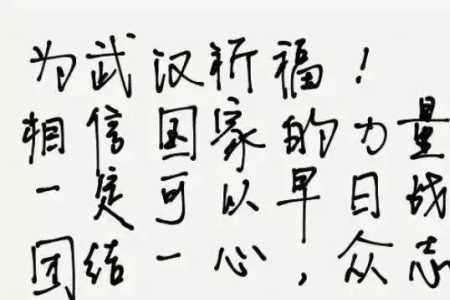 为武汉祈福！
相信国家的力量
一定可以早日战
团结一心，众志